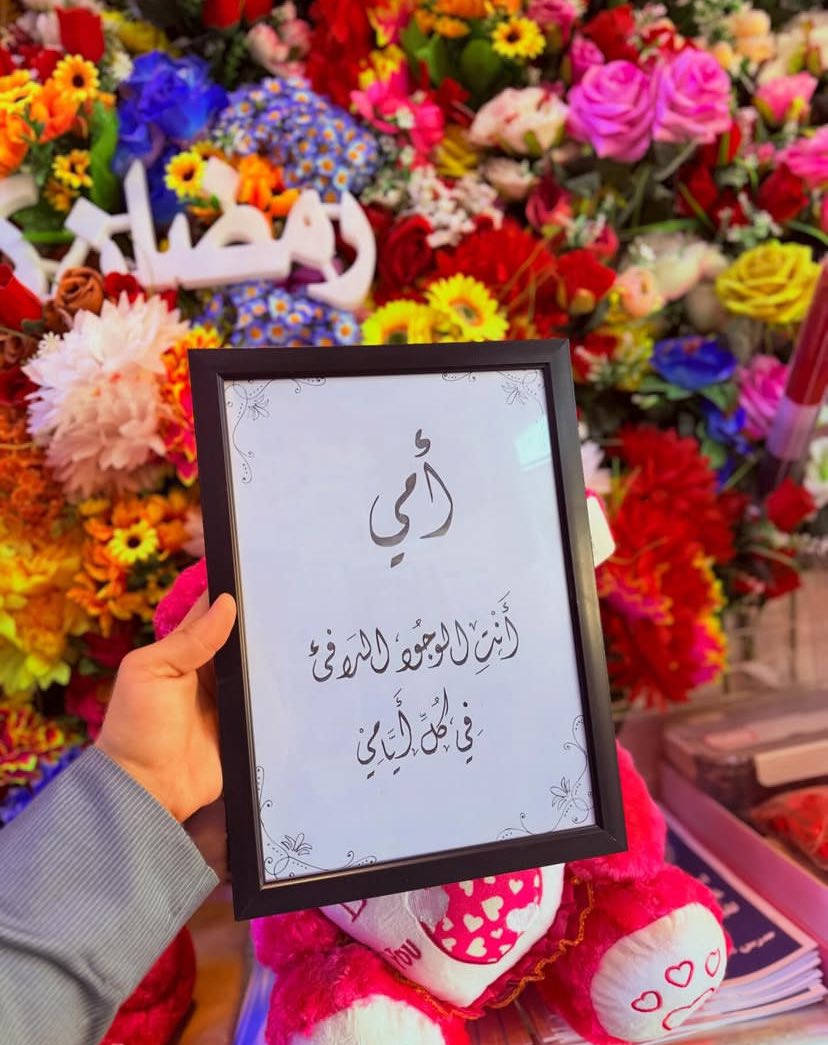 رمضان
أمي
أَنْتِ الوجُود الدَافئ
فِي كُلِّ أَيَّامِيْ
You